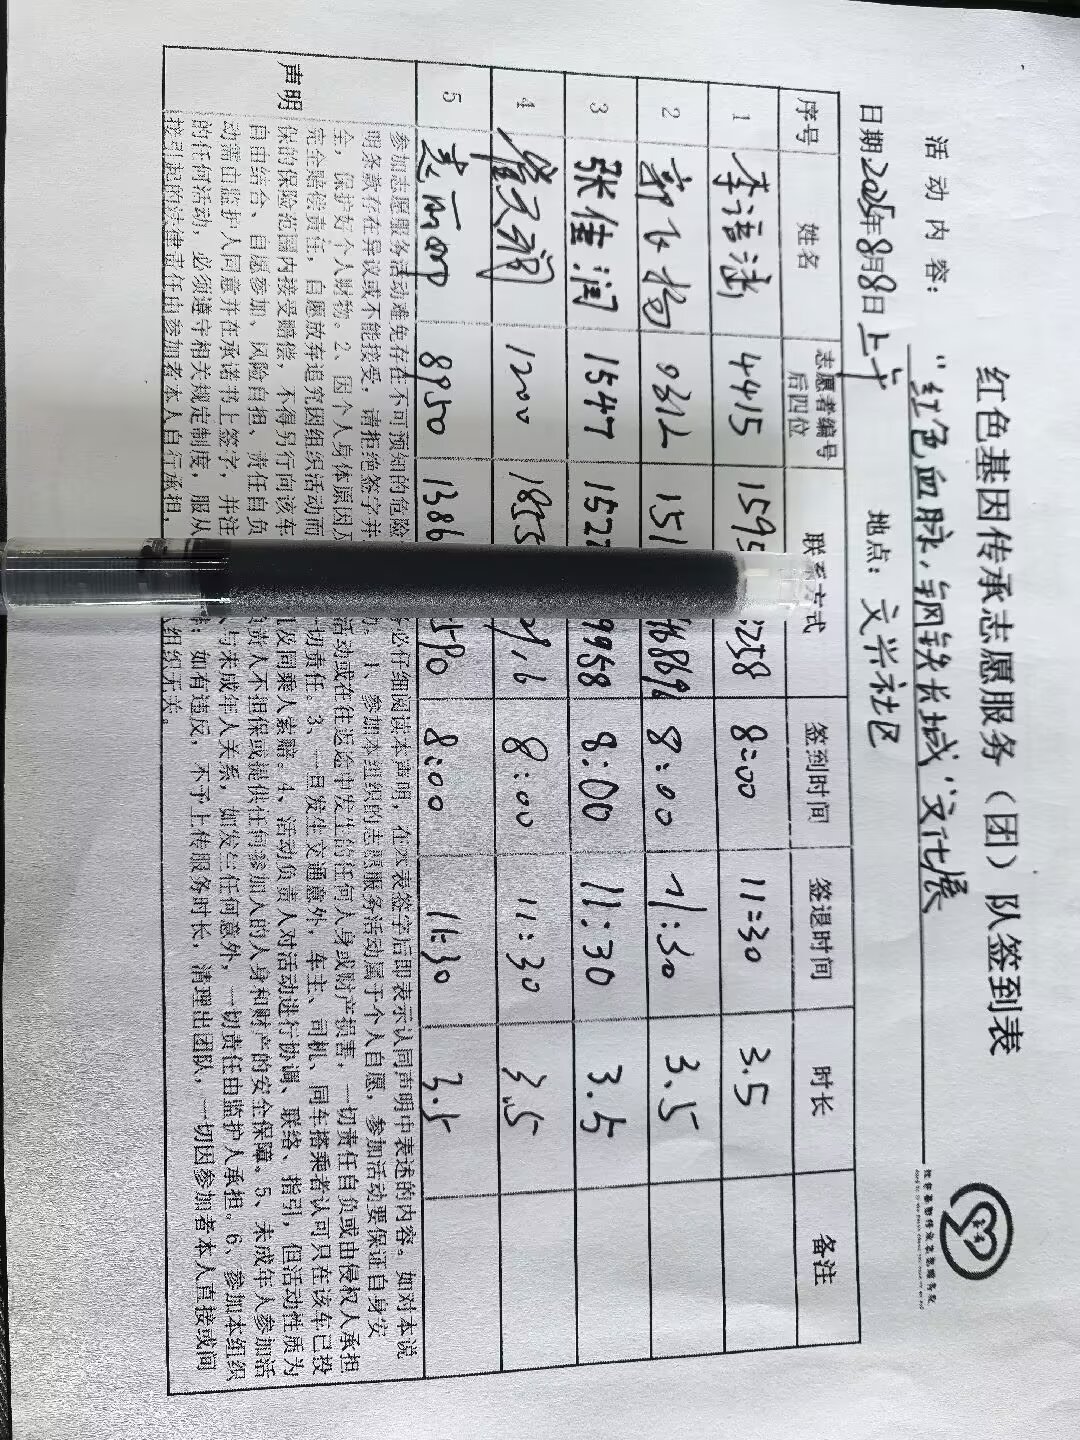 红色基因传承志愿服务（团）队签到表
活动内容："红色血脉，钢铁长城"文化展
日期2025年8月8日上午 地点：文兴社区
序号 姓名 志愿者编号后四位 联系方式 签到时间 签退时间 时长 备注
1 李语涵 4415 1595 258 8:00 11:30 3.5
2 151 8:00 11:30 3.5
3 张佳润 1547 1527 9958 8:00 11:30 3.5
4 1200 1855 8:00 11:30 3.5
5 8950 1386 590 8:00 11:30 3.5
声明
参加志愿服务活动难免存在不可预知的危险 必仔细阅读本声明，在本表签字后即表示认同声明中表述的内容。如对本说
明条款存在异议或不能接受，请拒绝签字并 1、参加本组织的志愿服务活动属于个人自愿，参加活动要保证自身安
全，保护好个人财物。2、因个人身体原因 活动或在往返途中发生的任何人身或财产损害，一切责任自负或由侵权人承担
完全赔偿责任，自愿放弃追究因组织活动而 一切责任。3、一旦发生交通意外，车主、司机、同车搭乘者认可只在该车已投
保的保险范围内接受赔偿，不得另行向该车 及同乘人索赔。4、活动负责人对活动进行协调、联络、指引，但活动性质为
自由结合、自愿参加、风险自担、责任自负 责人不担保或提供任何参加人的人身和财产的安全保障。5、未成年人参加活
动需由监护人同意并在承诺书上签字，并注 与未成年人关系，如发生任何意外，一切责任由监护人承担。6、参加本组织
的任何活动，必须遵守相关规定制度，服从 ；如有违反，不予上传服务时长，清理出团队，一切因参加者本人直接或间
接引起的法律责任由参加者本人自行承担， 组织无关。